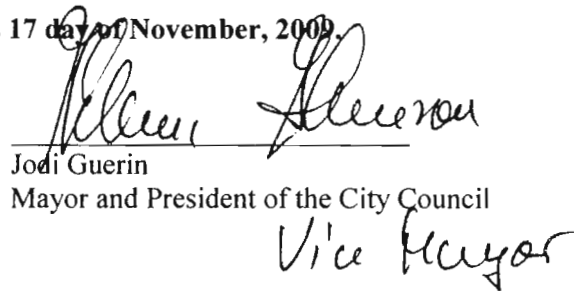 17 day of November, 2009.
Jodi Guerin
Mayor and President of the City Council
Vice Mayor